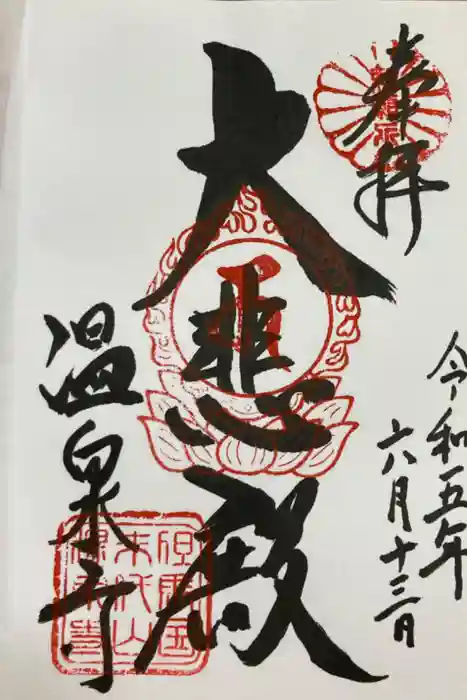 奉拝
令和五年
六月十三日
大悲殿
温泉寺
但馬国
末代山
温泉寺